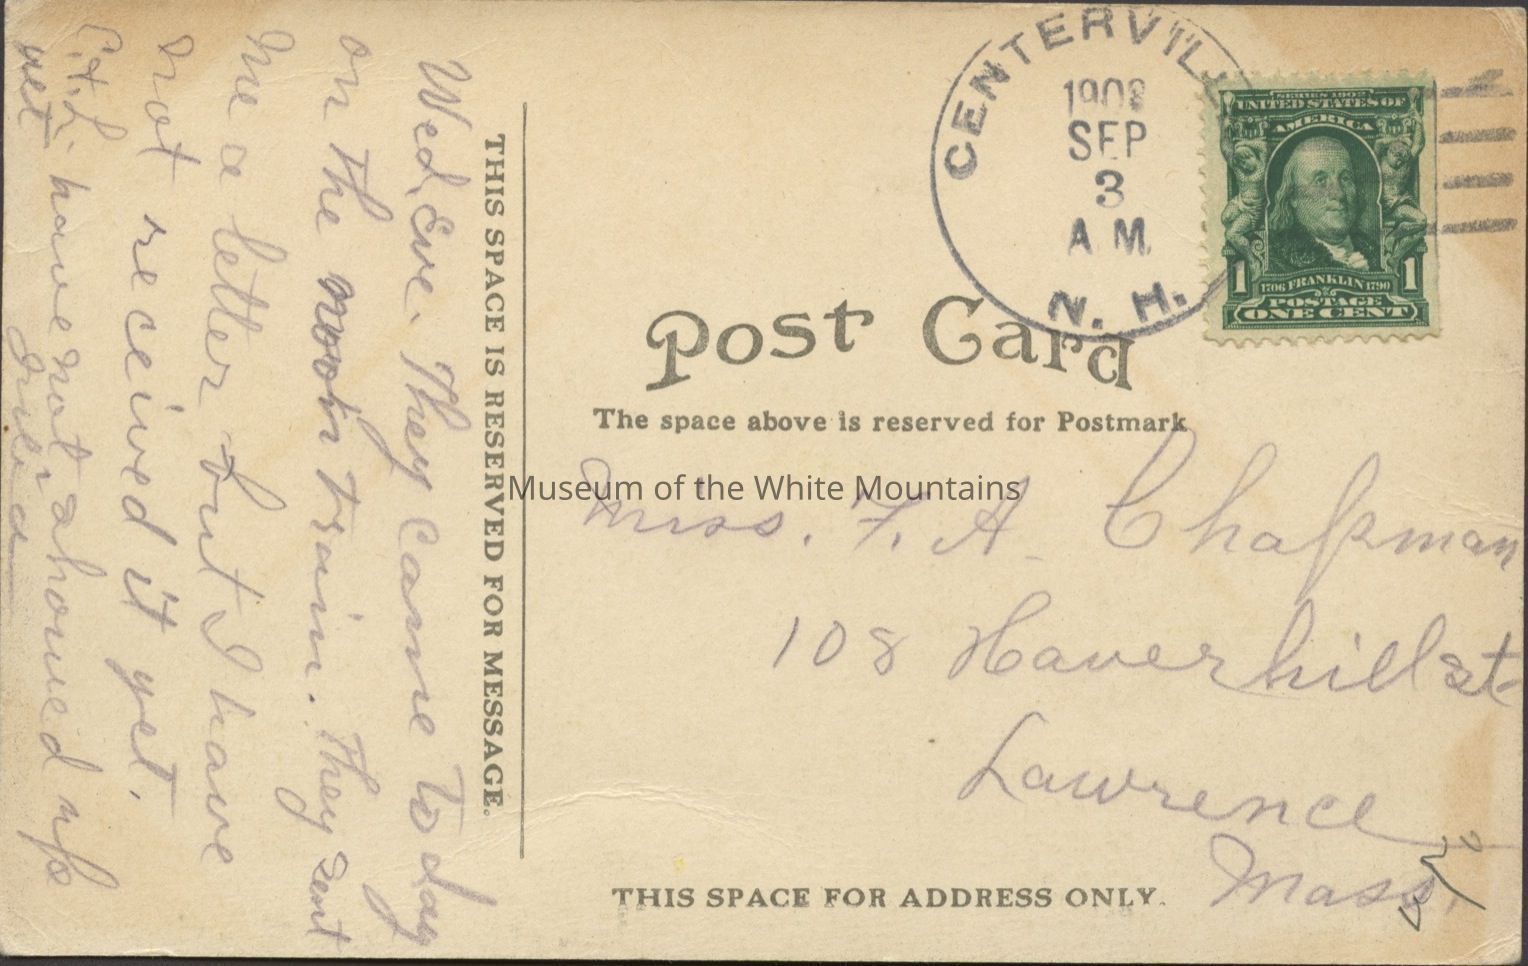 Wed. Eve. They came today
on the noon train. They sent
me a letter but I have
not received it yet.
E. & L. have not showed up
yet
THIS SPACE IS RESERVED FOR MESSAGE.
CENTERVIL
1908
SEP
3
A M.
N. H.
SERIES 1902
UNITED STATES OF
AMERICA
1 1
1706 FRANKLIN 1790
POSTAGE
ONE CENT
Post Card
The space above is reserved for Postmark
Museum of the White Mountains
Miss. F. A. Chapman
108 Haverhill st.
Lawrence
Mass.
THIS SPACE FOR ADDRESS ONLY.